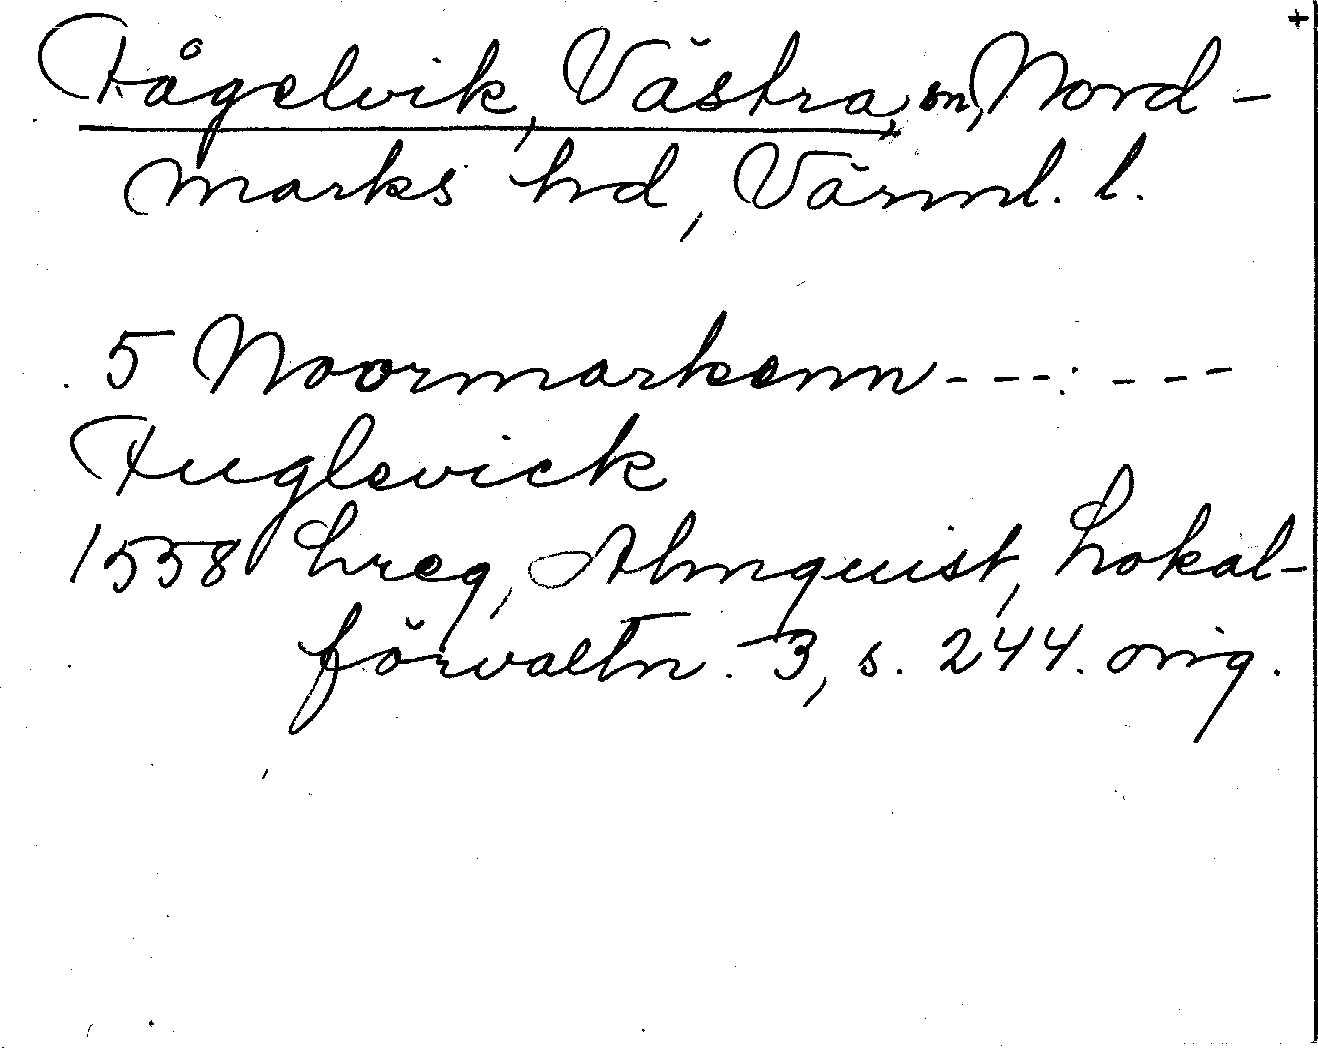 +
Fågelvik, Västra, sn, Nord-
marks hd, Värml. l.
5 Noormarkenn - - - - - -
Fuglevick
1558 Lreg, Almquist, Lokal-
förvaltn. 3, s. 244. orig.